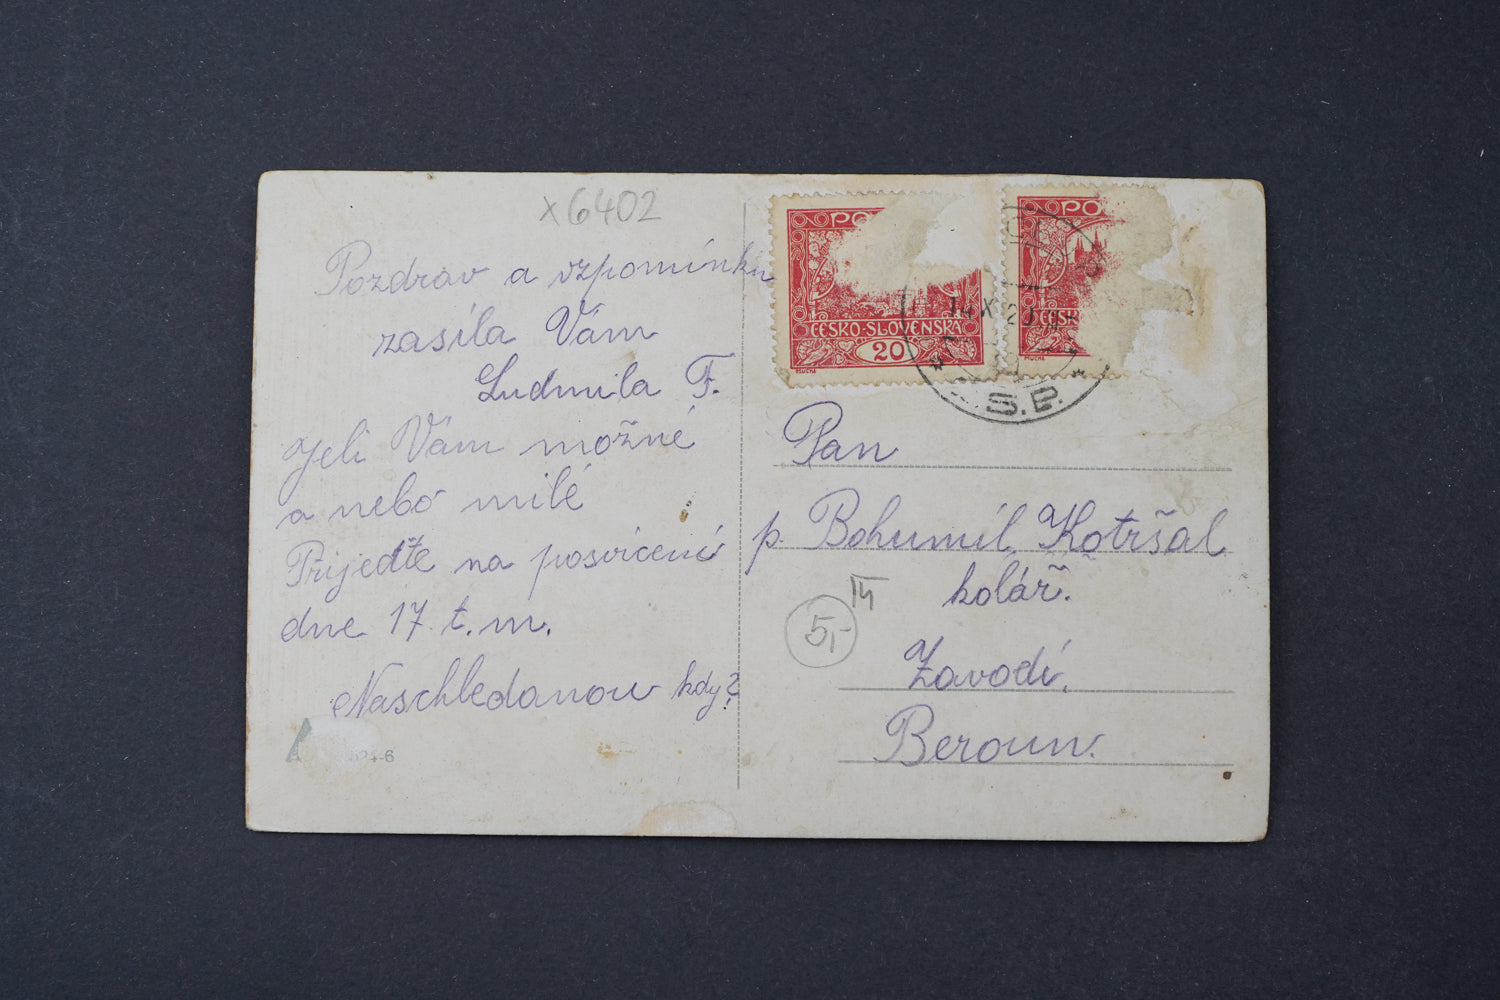 x6402
Pozdrav a vzpomínku
zasíla Vám
Ludmila F.
Jeli Vám možné
a nebo milé
Přijeďte na posvícení
dne 17 t.m.
Naschledanou kdy?
-6
PO
ČESKO-SLOVENSKÁ
20
MUCHA
PO
ČESKO
2
MUCHA
14 X 2
S.P.
Pan
p. Bohumil Kotršal
kolář.
5,-
Závodí.
Beroun.